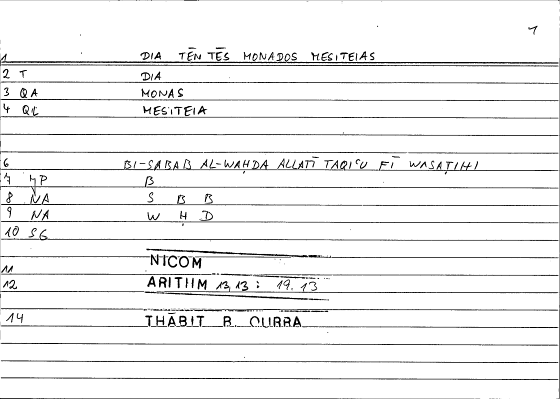 1
1 DIA TĒN TĒS MONADOS MESITEIAS
2 T DIA
3 QA MONAS
4 QL MESITEIA
6 BI-SABAB AL-WAḤDA ALLATĪ TAQIʿU FĪ WASAṬIHI
7 HP B
8 NA S B B
9 NA W Ḥ D
10 SG
11 NICOM
12 ARITHM 13,13 : 19.13
14 THĀBIT B. QURRA